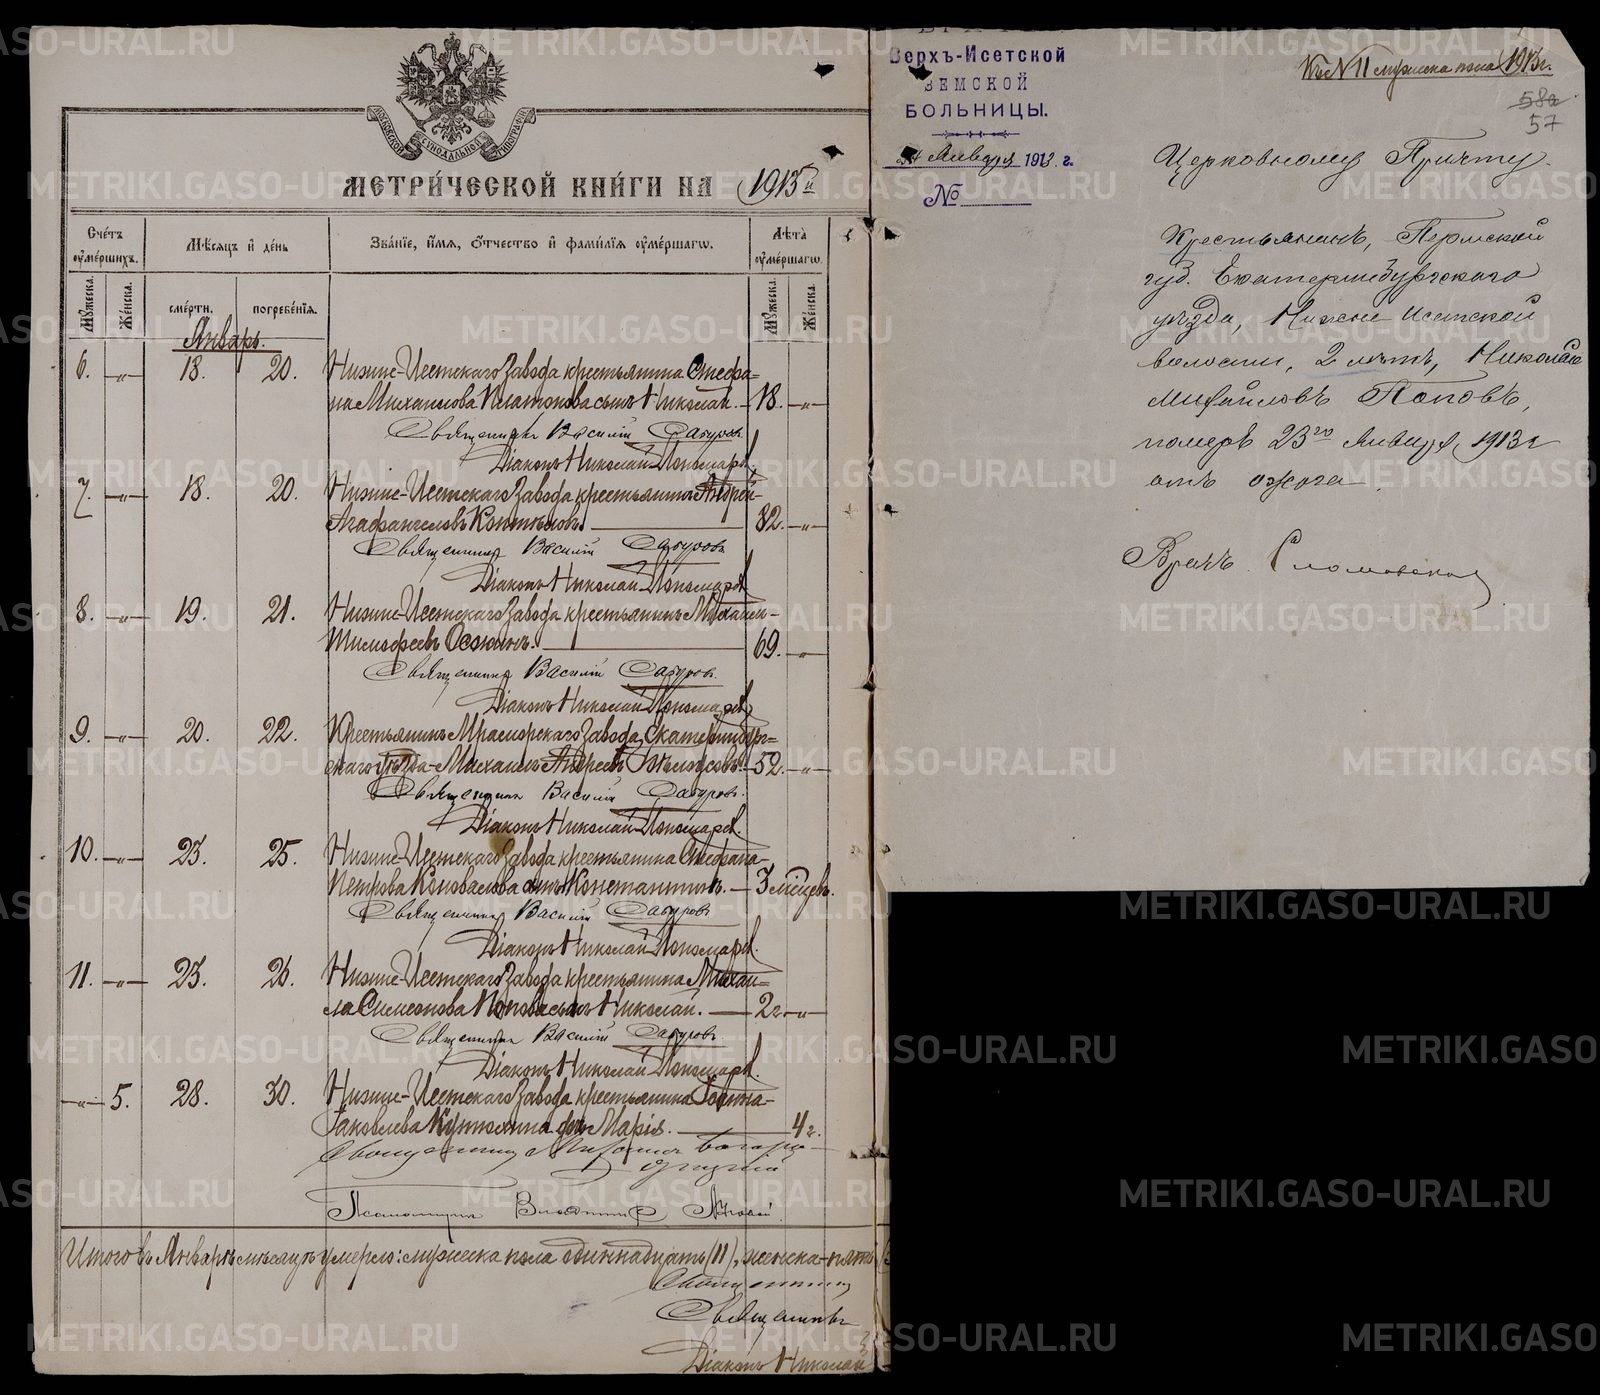 МОСКОВСКОЙ СѴНОДАЛЬНОЙ ТИПОГРАФІИ
МЕТРИ́ЧЕСКОЙ КНИ́ГИ НА 1913й
Сче́тъ ᲂумершихъ.
Мѣсяцъ и де́нь
Зва́нїе, и́мя, ѻ́тчество и фами́лїя ᲂуме́ршагѡ.
Лѣта ᲂуме́ршагѡ.
Мꙋжеска.
Же́нска.
сме́рти.
погребе́нїя.
Мꙋжеска.
Же́нска.
Январь.
6. -„- 18. 20. Нижне-Исетскаго Завода крестьянина Стефа=
на Михаилова Платонова сынъ Николай. — 18. -„-
Священникъ Василій Сабуровъ
Діаконъ Николай Пономарев.
7. -„- 18. 20. Нижне-Исетскаго Завода крестьянинъ Андрей
Агафангеловъ 82. -„-
Священникъ Василій Сабуровъ
Діаконъ Николай Пономарев.
8. -„- 19. 21. Нижне-Исетскаго Завода крестьянинъ Михаилъ
Тимофеевъ 69. -„-
Священникъ Василій Сабуровъ.
Діаконъ Николай Пономарев.
9. -„- 20. 22. Крестьянинъ Мраморскаго Завода, Екатеринбург=
скаго уѣзда Михаилъ Андреевъ 52. -„-
Священникъ Василій Сабуровъ.
Діаконъ Николай Пономарев.
10. -„- 23. 25. Нижне-Исетскаго Завода крестьянина Стефана
Петрова Коновалова сынъ Константинъ. — 3 месцев.
Священникъ Василій Сабуровъ
Діаконъ Николай Пономарев.
11. -„- 23. 26. Нижне-Исетскаго Завода крестьянина Михаи=
ла Симеонова Попова сынъ Николай. — 2 г. -„-
Священникъ Василій Сабуровъ.
Діаконъ Николай Пономарев.
-„- 5. 28. 30. Нижне-Исетскаго Завода крестьянина
Іаковлева дочь Марія. — 4 г.
Священникъ
Псаломщикъ
Итого въ Январѣ месяцѣ умерло: мужеска пола одиннадцать (11), женска-пять (5
Священникъ
Священникъ
Діаконъ Николай
Верхъ-Исетской
ЗЕМСКОЙ
БОЛЬНИЦЫ.
24 Января 1913 г.
№
Къ № 11 мужеска пола 1913 г.
58а
57
Церковному Причту.
Крестьянинъ, Пермской
губ. Екатеринбургскаго
уѣзда, Нижне Исетской
волости, 2 лѣтъ, Николай
Михайловъ Поповъ,
померъ 23го Января 1913 г
отъ ожога.
Врачъ
METRIKI.GASO-URAL.RU